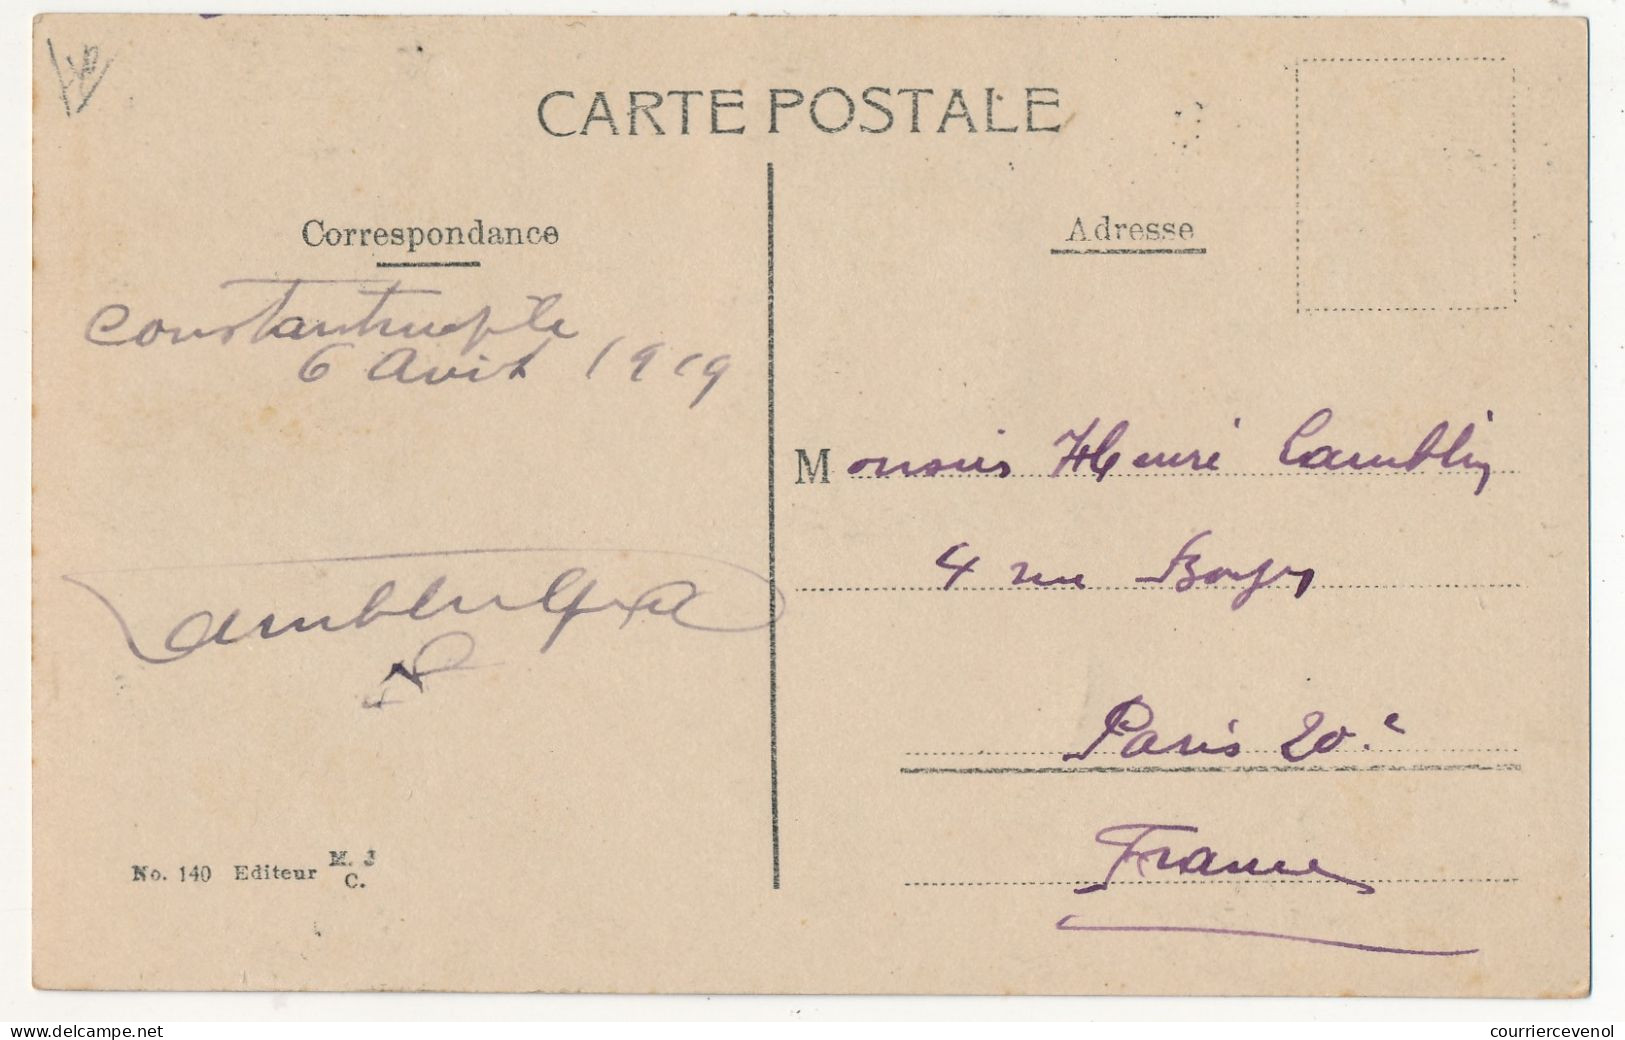 CARTE POSTALE
Correspondance
Constantinople
6 Avril 1919
No. 140 Editeur M. J
C.
Adresse
Monsieur Henri Camblin
4 rue
Paris 20.e
France
delcampe.net
courriercevenol